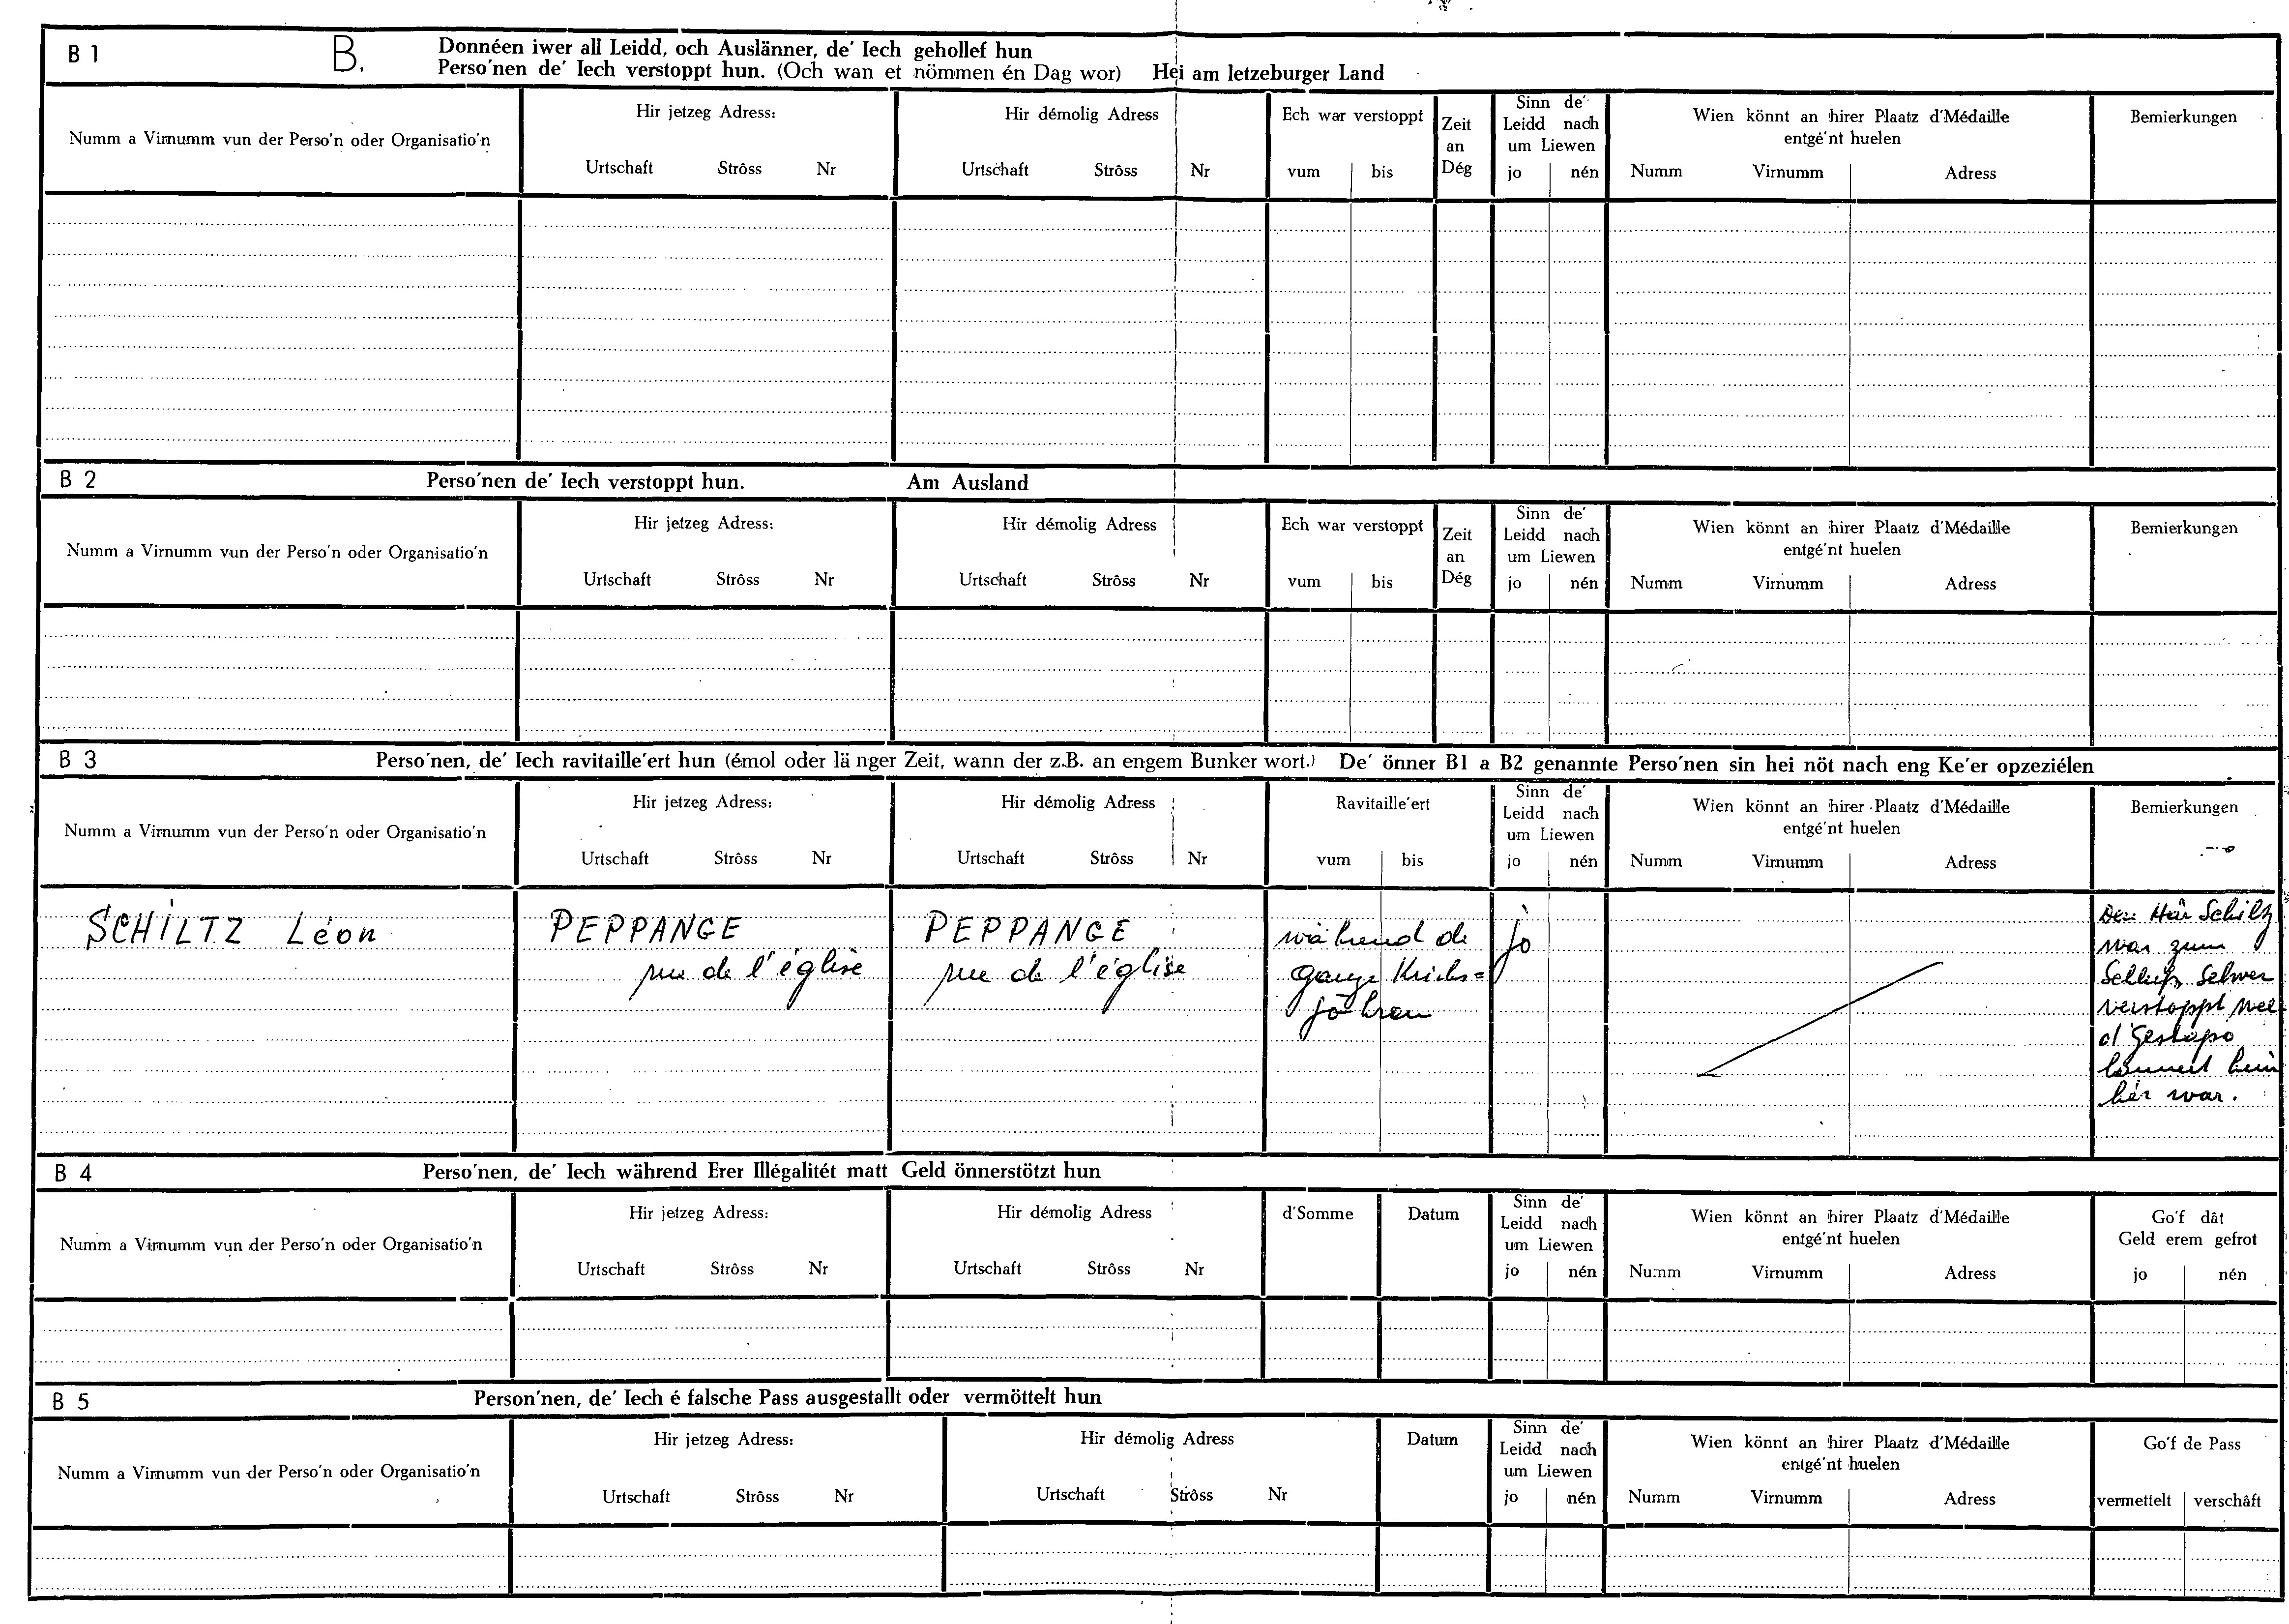 B 1 B. Donnéen iwer all Leidd, och Auslänner, de' Iech gehollef hun
Perso'nen de' Iech verstoppt hun. (Och wan et nömmen én Dag wor) Hei am letzeburger Land
Numm a Virnumm vun der Perso'n oder Organisatio'n
Hir jetzeg Adress:
Urtschaft Strôss Nr
Hir démolig Adress
Urtschaft Strôss Nr
Ech war verstoppt
vum bis
Zeit
an
Dég
Sinn de'
Leidd nach
um Liewen
jo nén
Wien könnt an hirer Plaatz d'Médaille
entgé'nt huelen
Numm Virnumm Adress
Bemierkungen
B 2 Perso'nen de' Iech verstoppt hun. Am Ausland
Numm a Virnumm vun der Perso'n oder Organisatio'n
Hir jetzeg Adress:
Urtschaft Strôss Nr
Hir démolig Adress
Urtschaft Strôss Nr
Ech war verstoppt
vum bis
Zeit
an
Dég
Sinn de'
Leidd nach
um Liewen
jo nén
Wien könnt an hirer Plaatz d'Médaille
entgé'nt huelen
Numm Virnumm Adress
Bemierkungen
B 3 Perso'nen, de' Iech ravitaille'ert hun (émol oder länger Zeit, wann der z.B. an engem Bunker wort.) De' önner B1 a B2 genannte Perso'nen sin hei nöt nach eng Ke'er opzeziélen
Numm a Virnumm vun der Perso'n oder Organisatio'n
Hir jetzeg Adress:
Urtschaft Strôss Nr
Hir démolig Adress
Urtschaft Strôss Nr
Ravitaille'ert
vum bis
Sinn de'
Leidd nach
um Liewen
jo nén
Wien könnt an hirer Plaatz d'Médaille
entgé'nt huelen
Numm Virnumm Adress
Bemierkungen
SCHILTZ Léon
PEPPANGE
rue de l'église
PEPPANGE
rue de l'église
während de
ganze Krichs=
jöhren
jo
Den Här Schiltz
war zum
Schluss selwer
verstoppt well
d'Gestapo
hannert him
hier war.
B 4 Perso'nen, de' Iech während Erer Illégalitét matt Geld önnerstötzt hun
Numm a Virnumm vun der Perso'n oder Organisatio'n
Hir jetzeg Adress:
Urtschaft Strôss Nr
Hir démolig Adress
Urtschaft Strôss Nr
d'Somme
Datum
Sinn de'
Leidd nach
um Liewen
jo nén
Wien könnt an hirer Plaatz d'Médaille
entgé'nt huelen
Numm Virnumm Adress
Go'f dât
Geld erem gefrot
jo nén
B 5 Person'nen, de' Iech é falsche Pass ausgestallt oder vermöttelt hun
Numm a Virnumm vun der Perso'n oder Organisatio'n
Hir jetzeg Adress:
Urtschaft Strôss Nr
Hir démolig Adress
Urtschaft Strôss Nr
Datum
Sinn de'
Leidd nach
um Liewen
jo nén
Wien könnt an hirer Plaatz d'Médaille
entgé'nt huelen
Numm Virnumm Adress
Go'f de Pass
vermettelt verschâft